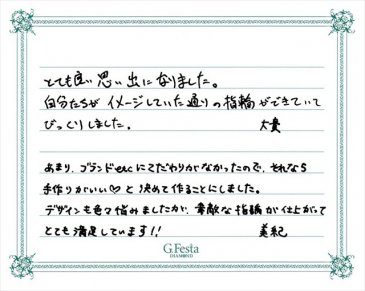 とても良い思い出になりました。
自分たちが イメージしていた通りの指輪ができていて
びっくりしました。 大貴
あまり、ブランドetcにこだわりがなかったので、それなら
手作りがいい♡と決めて作ることにしました。
デザインも色々悩みましたが、素敵な指輪が仕上がって
とても満足しています!! 美紀
G.Festa
DIAMOND